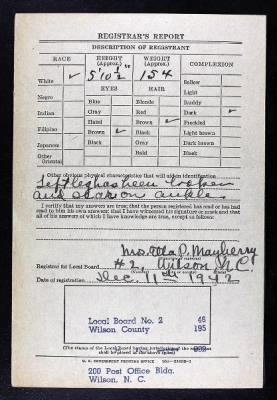 REGISTRAR'S REPORT
DESCRIPTION OF REGISTRANT
RACE HEIGHT (Approx.) WEIGHT (Approx.) COMPLEXION
5'10½ 154
White ✓ Sallow
EYES HAIR Light
Negro Blue Blonde Ruddy
Indian Gray Red Dark ✓
Filipino Hazel Brown ✓ Freckled
Brown ✓ Black Light brown
Japanese Black Gray Dark brown
Other Oriental Bald Black
Other obvious physical characteristics that will aid in identification
Left leg has been broken
and scar on ankle.
I certify that my answers are true; that the person registered has read or has had
read to him his own answers; that I have witnessed his signature or mark and that
all of his answers of which I have knowledge are true, except as follows:
Mrs. P. Mayberry
Registrar for Local Board #2, Wilson N.C.
Date of registration Dec. 11th 1942
Local Board No. 2 46
Wilson County 195
(The stamp of the Local Board having jurisdiction of the registrant
shall be placed in the above space)
U. S. GOVERNMENT PRINTING OFFICE
200 Post Office Bldg.
Wilson, N. C.